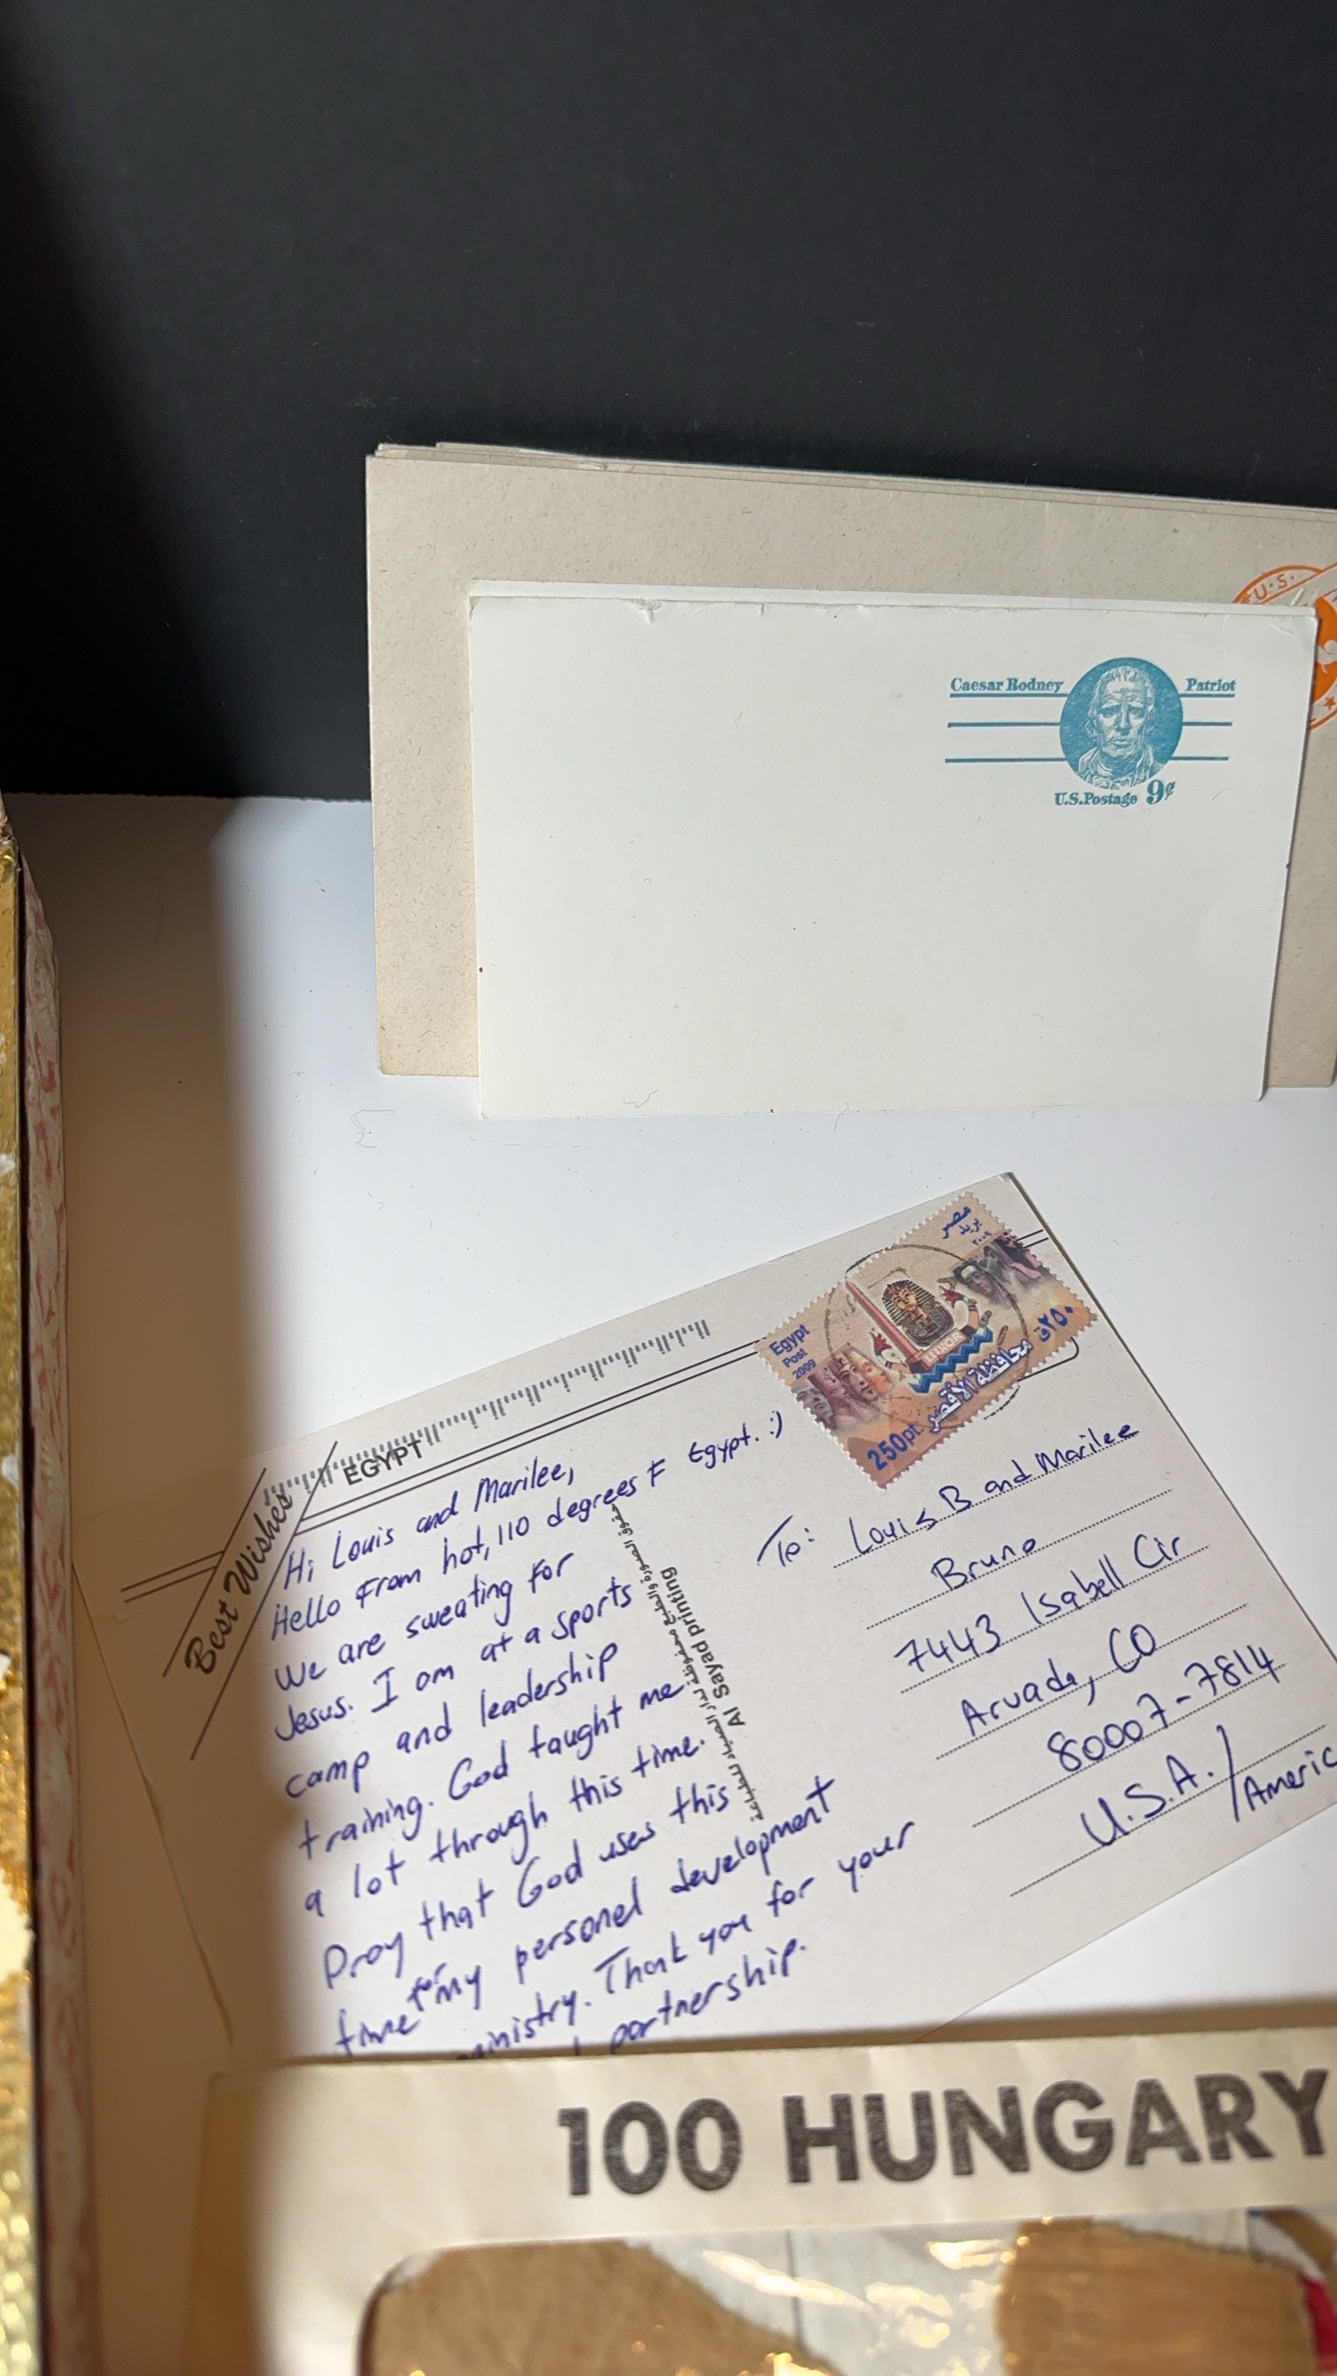 U.S.
Caesar Rodney
Patriot
U.S.Postage 9¢
مصر
بريد
٢٠٠٩
Egypt
Post
2009
LUXOR
٢٥٠ق
محافظة الأقصر
250pt
EGYPT
Best Wishes
Hi Louis and Marilee,
Hello From hot, 110 degrees F Egypt. :)
We are sweating for
Jesus. I am at a sports
camp and leadership
training. God taught me
a lot through this time.
Pray that God uses this
time for my personal development
ministry. Thank you for your
partnership.
Al Sayad printing
To: Louis B and Marilee
Bruno
7443 Isabell Cir
Arvada, CO
80007-7814
U.S.A./
Americ
100 HUNGARY